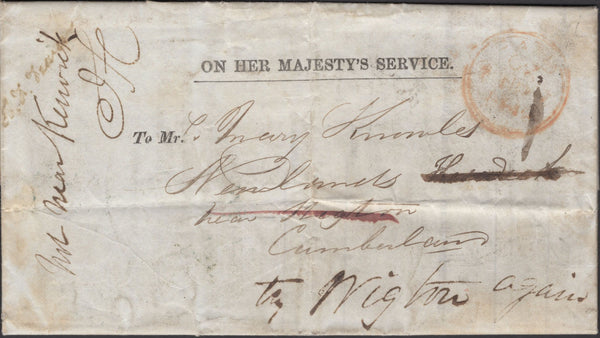 ON HER MAJESTY'S SERVICE.
To Mr. s Mary Knowles
Newlands
near Wigton
Cumberland
try Wigton again
Not near Keswick